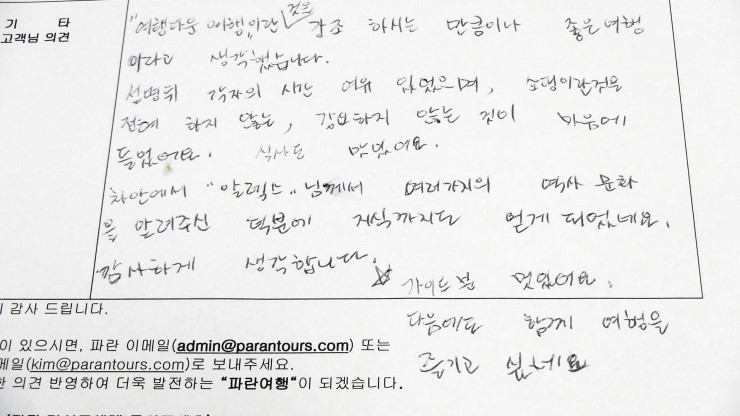 기 타
고객님 의견
"여행다운 여행"이란 것을 강조 하시는 만큼이나 좋은여행
이다고 생각했습니다.
설명뒤 각자의 시간 여유 있었으며, 쇼핑이란것을
전혀 하지 않는, 강요하지 않는 것이 마음에
들었어요. 식사도 맛있어요.
차안에서 "알렉스"님께서 여러가지의 역사 문화
을 알려주신 덕분에 지식까지도 얻게 되었네요.
감사하게 생각합니다.
☆ 가이드분 멋있어요.
다음에도 함께 여행을
즐기고 싶네요
감사 드립니다.
이 있으시면, 파란 이메일(admin@parantours.com) 또는
메일(kim@parantours.com)로 보내주세요.
한 의견 반영하여 더욱 발전하는 "파란여행"이 되겠습니다.